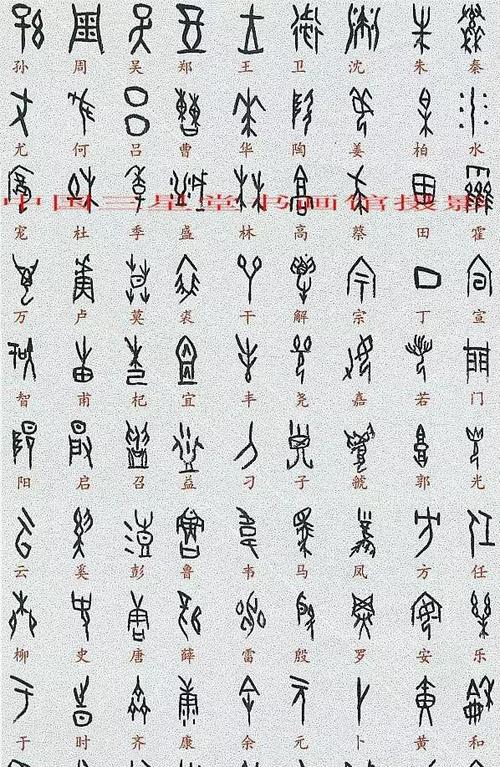 孙 周 吴 郑 王 卫 沈 朱 秦
尤 何 吕 曹 华 陶 姜 柏 水
中国三星堂书画馆摄影
宠 杜 季 盛 林 高 蔡 田 霍
万 卢 莫 裘 干 解 宗 丁 宣
智 甫 杞 宜 丰 尧 嘉 若 门
阳 启 召 益 刁 子 虢 郭 光
云 奚 彭 鲁 韦 马 凤 方 任
柳 史 唐 薛 雷 殷 罗 安 乐
于 时 齐 康 余 元 卜 黄 和